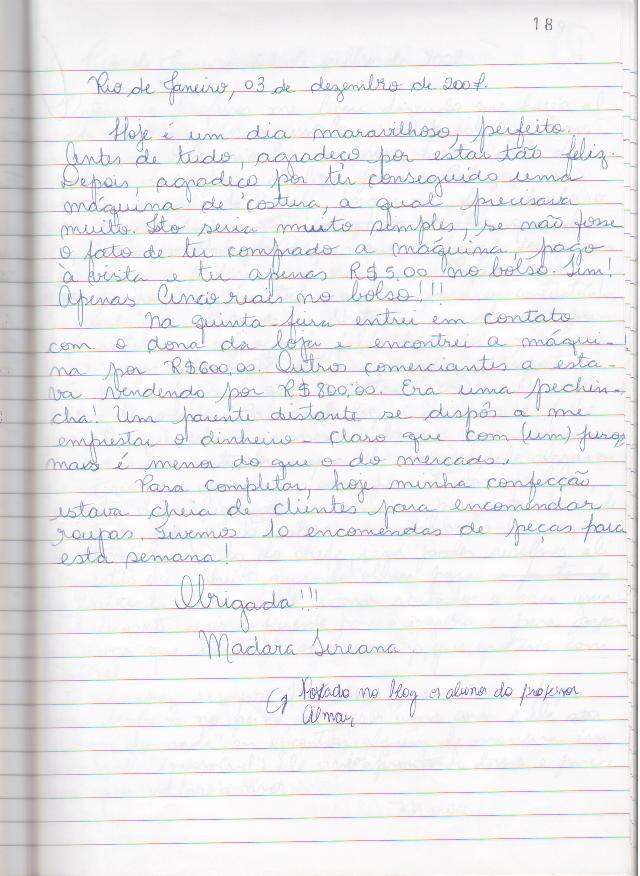 18
Rio de Janeiro, 03 de dezembro de 2007.
Hoje é um dia maravilhoso, perfeito.
Antes de tudo, agradeço por estar tão feliz.
Depois, agradeço por ter conseguido uma
máquina de costura, a qual precisava
muito. Isto seria muito simples, se não fosse
o fato de ter comprado a máquina, pago
à vista e ter apenas R$5,00 no bolso. Sim!
Apenas Cinco reais no bolso!!!
Na quinta-feira entrei em contato
com o dona da loja e encontrei a máqui-
na por R$600,00. Outros comerciantes a esta-
va vendendo por R$800,00. Era uma pechin-
cha! Um parente distante se dispôs a me
emprestar o dinheiro - claro que com (um) juros
mais é menor do que o do mercado.
Para completar, hoje minha confecção
estava cheia de clientes para encomendar
roupas. Tivemos 10 encomendas de peças para
esta semana!
Obrigada!!!
Madara Sereana.
Postado no blog os alunos do professor